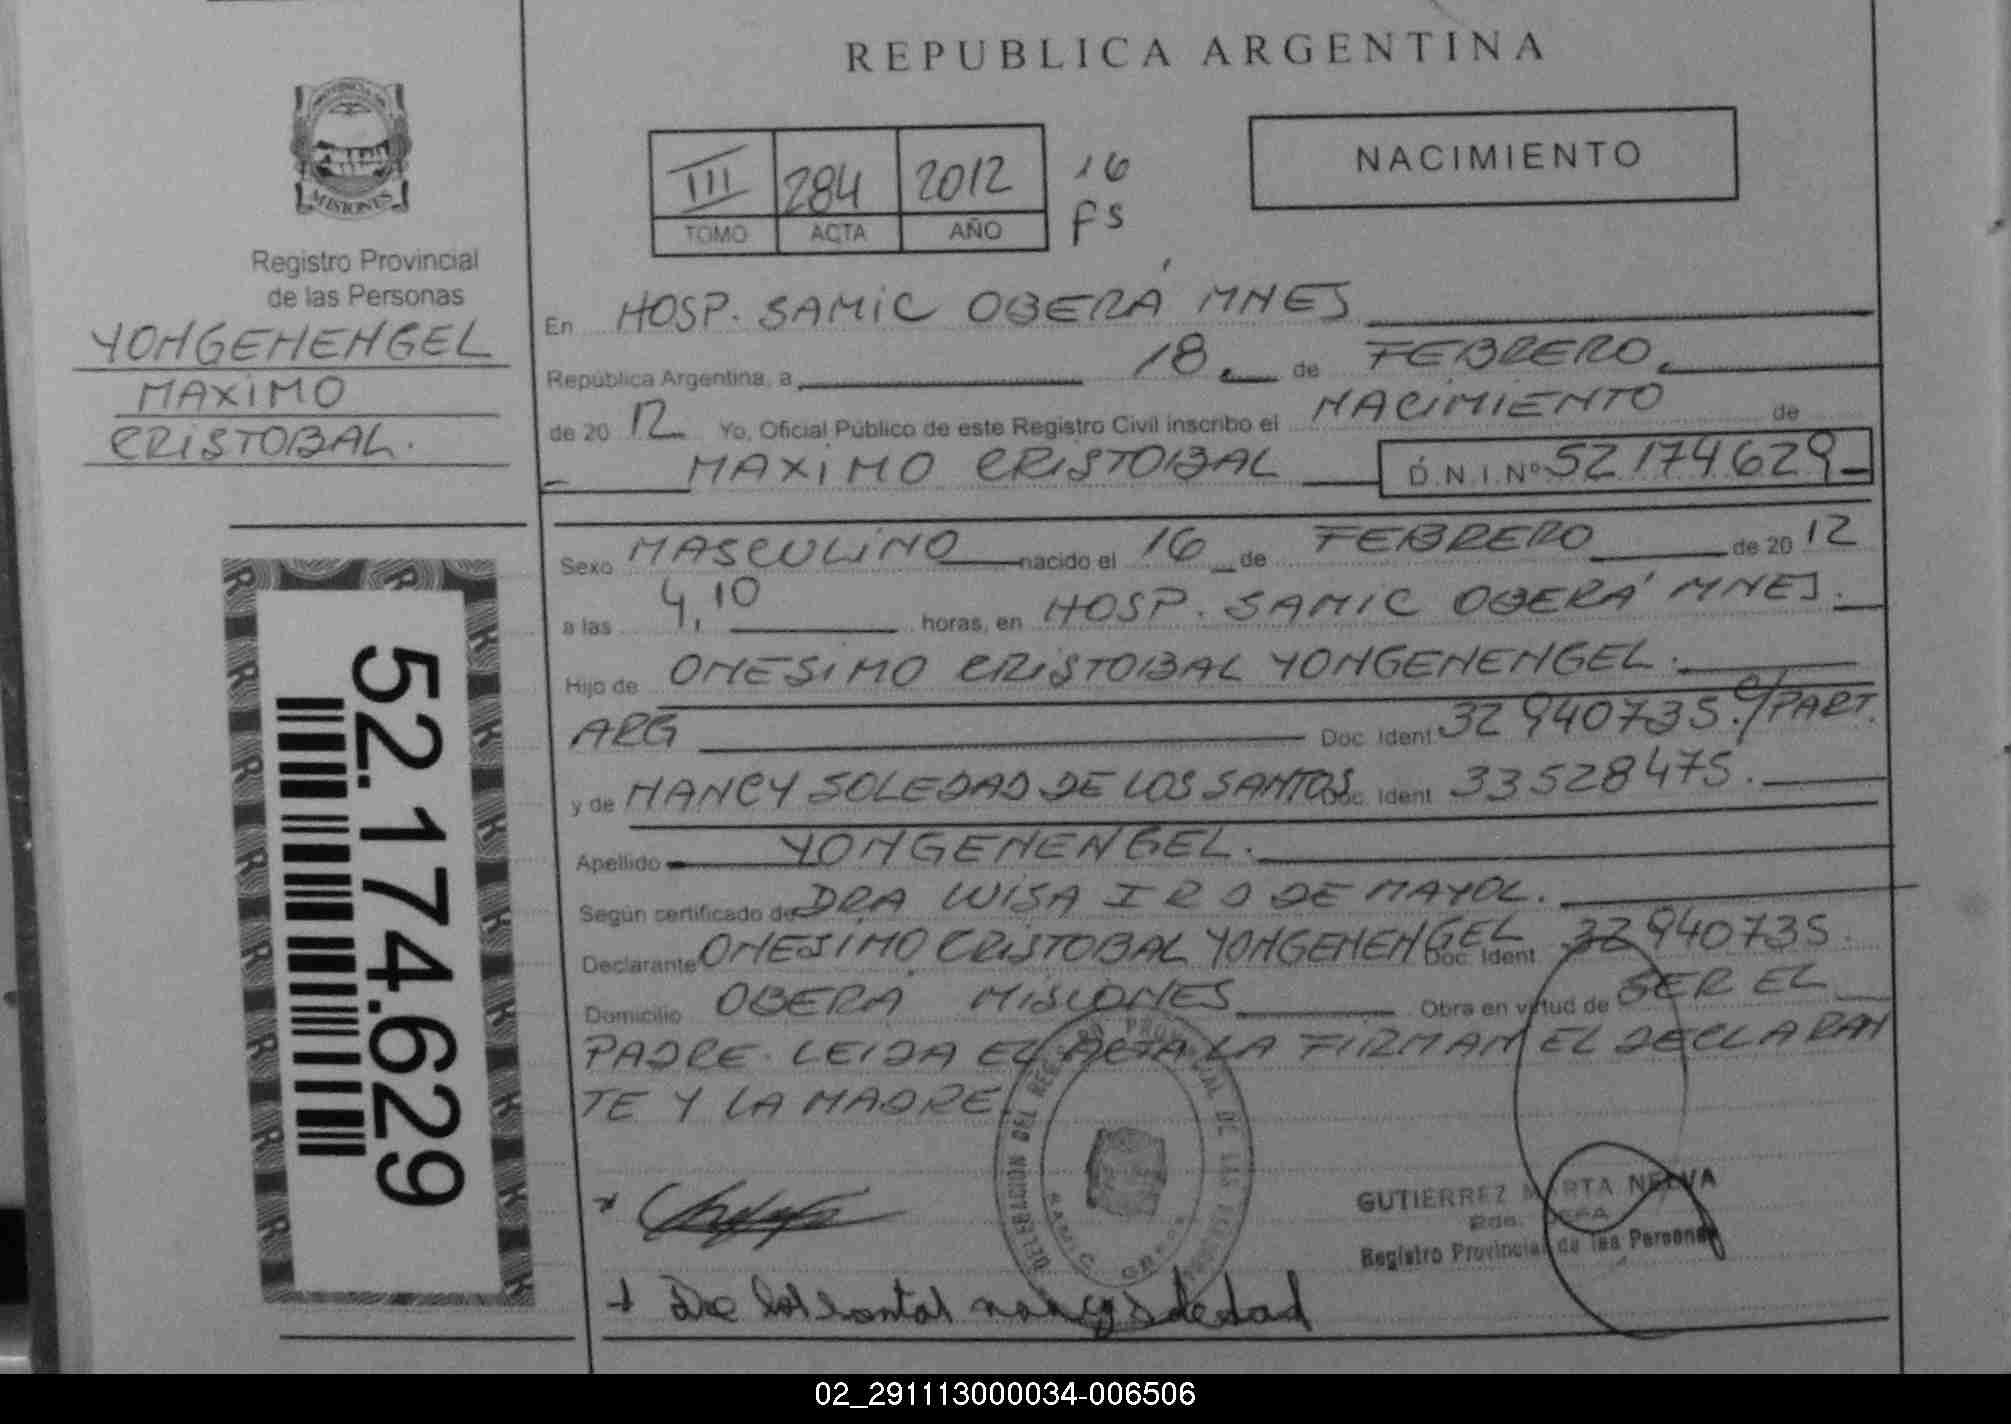 REPUBLICA ARGENTINA
PROVINCIA DE
MISIONES
Registro Provincial
de las Personas
YONGENENGEL
MAXIMO
CRISTOBAL.
III 284 2012 16
TOMO ACTA AÑO FS
NACIMIENTO
En HOSP. SAMIC OBERÁ MNES
República Argentina, a 18 de FEBRERO
de 20 12 Yo, Oficial Público de este Registro Civil inscribo el NACIMIENTO de
MAXIMO CRISTOBAL D.N.I.Nº 52174629
Sexo MASCULINO nacido el 16 de FEBRERO de 20 12
a las 4,10 horas, en HOSP. SAMIC OBERÁ MNES.
Hijo de ONESIMO CRISTOBAL YONGENENGEL.
ARG Doc. Ident. 32940735. C/PART.
y de NANCY SOLEDAD DE LOS SANTOS Doc. Ident. 33528475.
Apellido YONGENENGEL.
Según certificado de DRA LUISA I R D DE MAYOL.
Declarante ONESIMO CRISTOBAL YONGENENGEL Doc. Ident. 32940735.
Domicilio OBERÁ MISIONES Obra en virtud de SER EL
PADRE. LEIDA EL ACTA LA FIRMAN EL DECLARAN
TE Y LA MADRE.
52.174.629
DELEGACION DEL REGISTRO PROVINCIAL DE LAS PERSONAS
GUTIERREZ MARTA NELVA
Registro Provincial de las Personas
De los santos nancy soledad
02_291113000034-006506